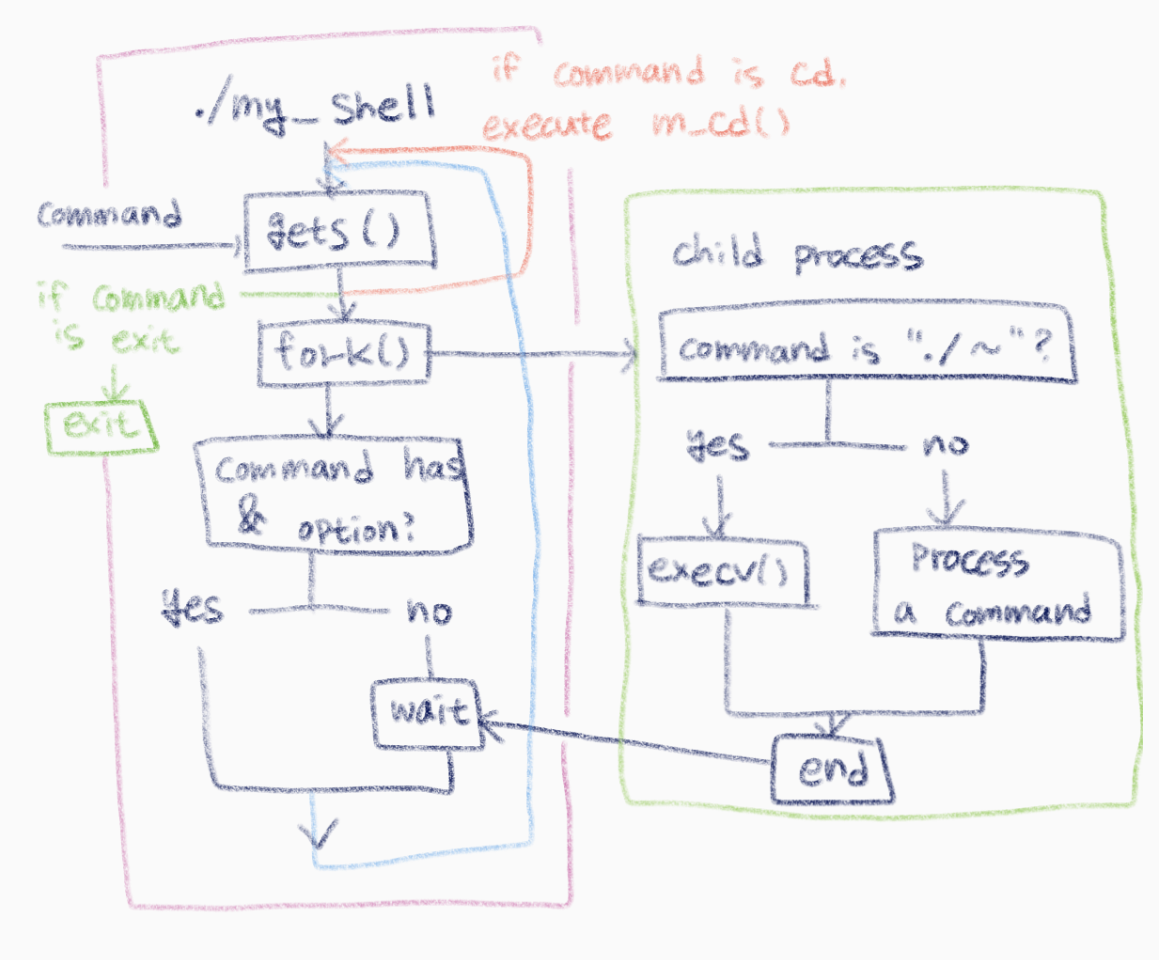 if command is cd.
execute m_cd()
./my_shell
command
gets()
if command
is exit
exit
fork()
command has
& option?
yes
no
wait
child process
command is "./~"?
yes
no
execv()
process
a command
end